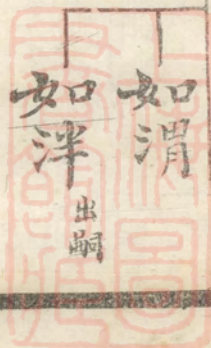 如渭
如泮 出嗣